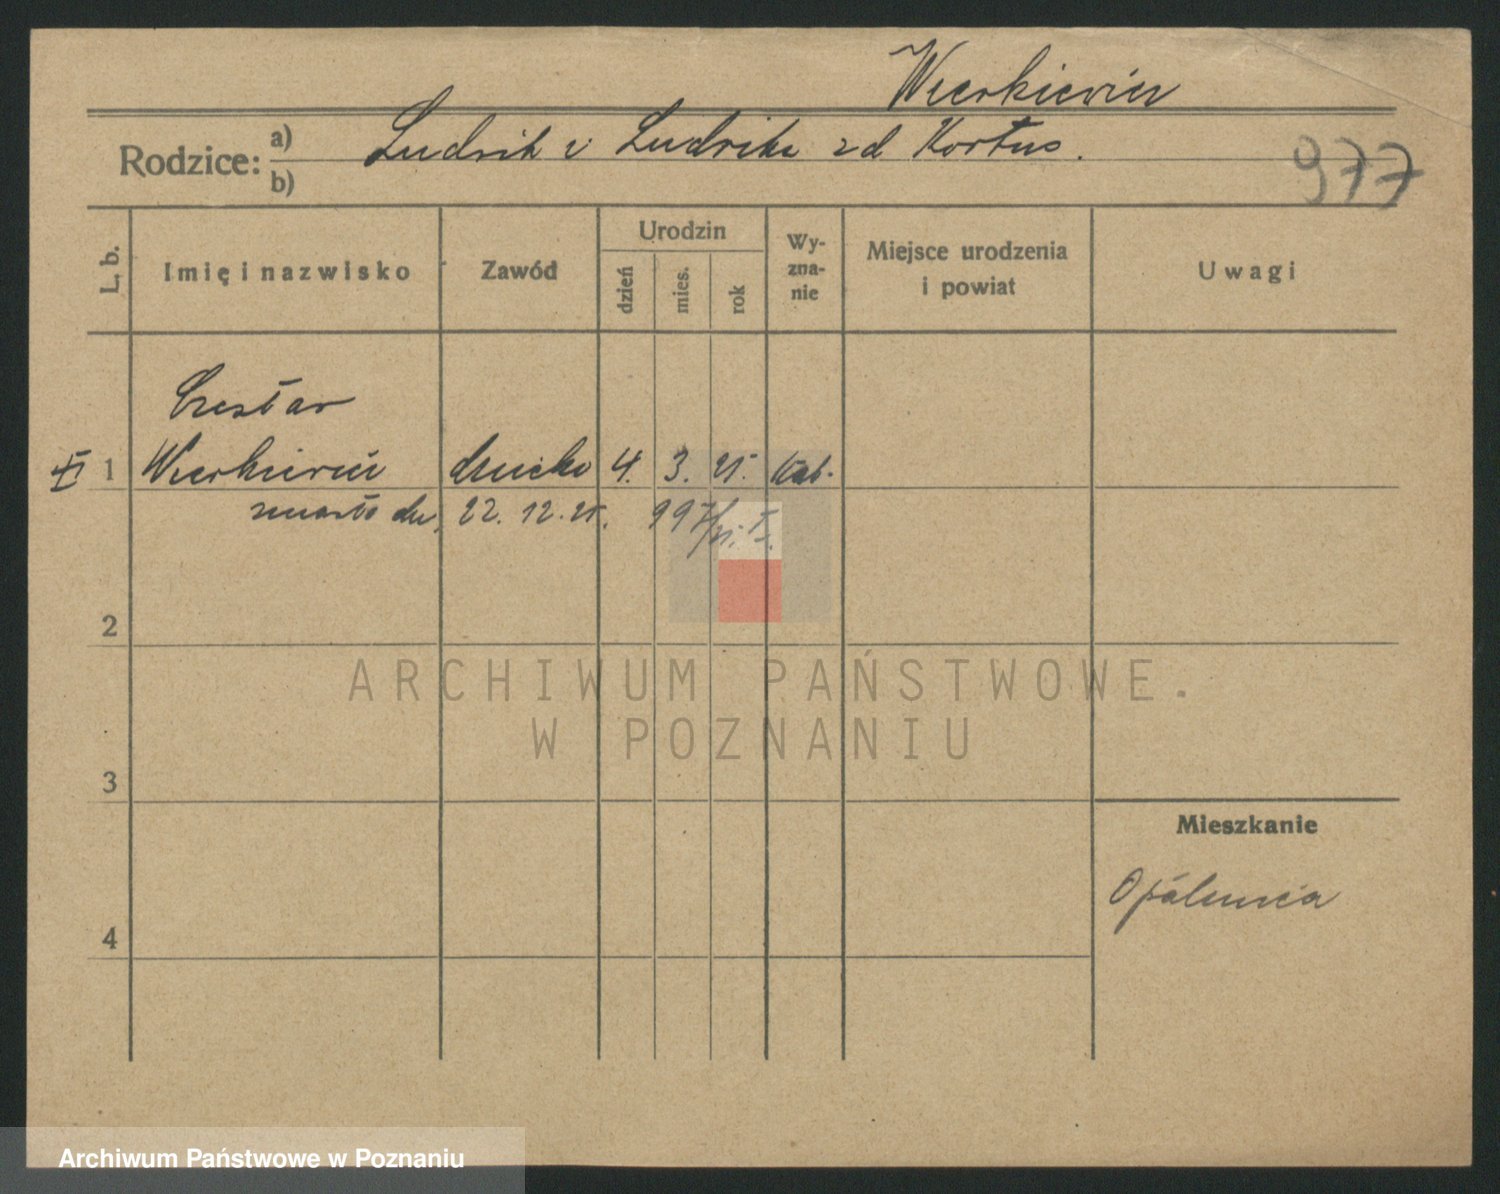 Wierkiewicz
Rodzice: a) b) Ludwik i Ludwika zd Kortus.
977
L. b. Imię i nazwisko Zawód Urodzin dzień mies. rok Wy-zna-nie Miejsce urodzenia i powiat Uwagi
Czesław
1 Wierkiewicz dziecko 4. 3. 25. kat.
zmarło dn. 22. 12. 25. 997/25.
2
ARCHIWUM PAŃSTWOWE.
W POZNANIU
3
Mieszkanie
Opalenica
4
Archiwum Państwowe w Poznaniu